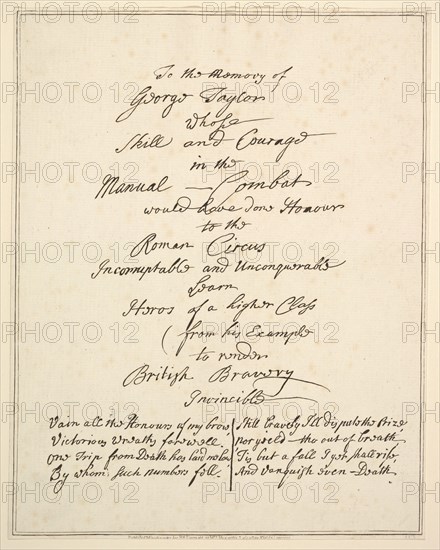 To the Memory of
George Taylor
whose
Skill and Courage
in the
Manual — Combat
would have done Honour
to the
Roman Circus
Incorruptable and Unconquerable
Learn
Heros of a higher Class
(from his Example
to render
British Bravery
Invincible
Vain all the Honours of my brow
Victorious wreaths farewell
one Trip from Death has laid me low
By whom such numbers fell.
Still bravely I'll dispute the Prize
nor yield – tho out of breath
Tis but a fall I yet shall rise,
And Vanquish even – Death.
PHOTO 12